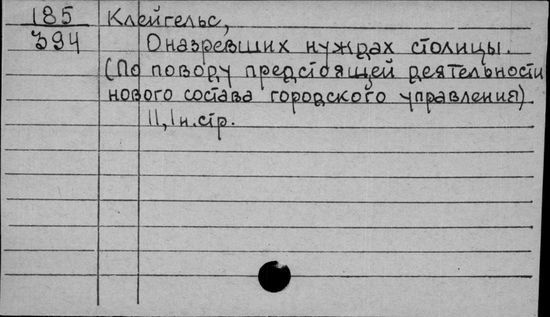 185 Клейгельс,
394 О назревших нуждах столицы.
(По поводу предстоящей деятельности
нового состава городского управления)
II, 1 н. стр.